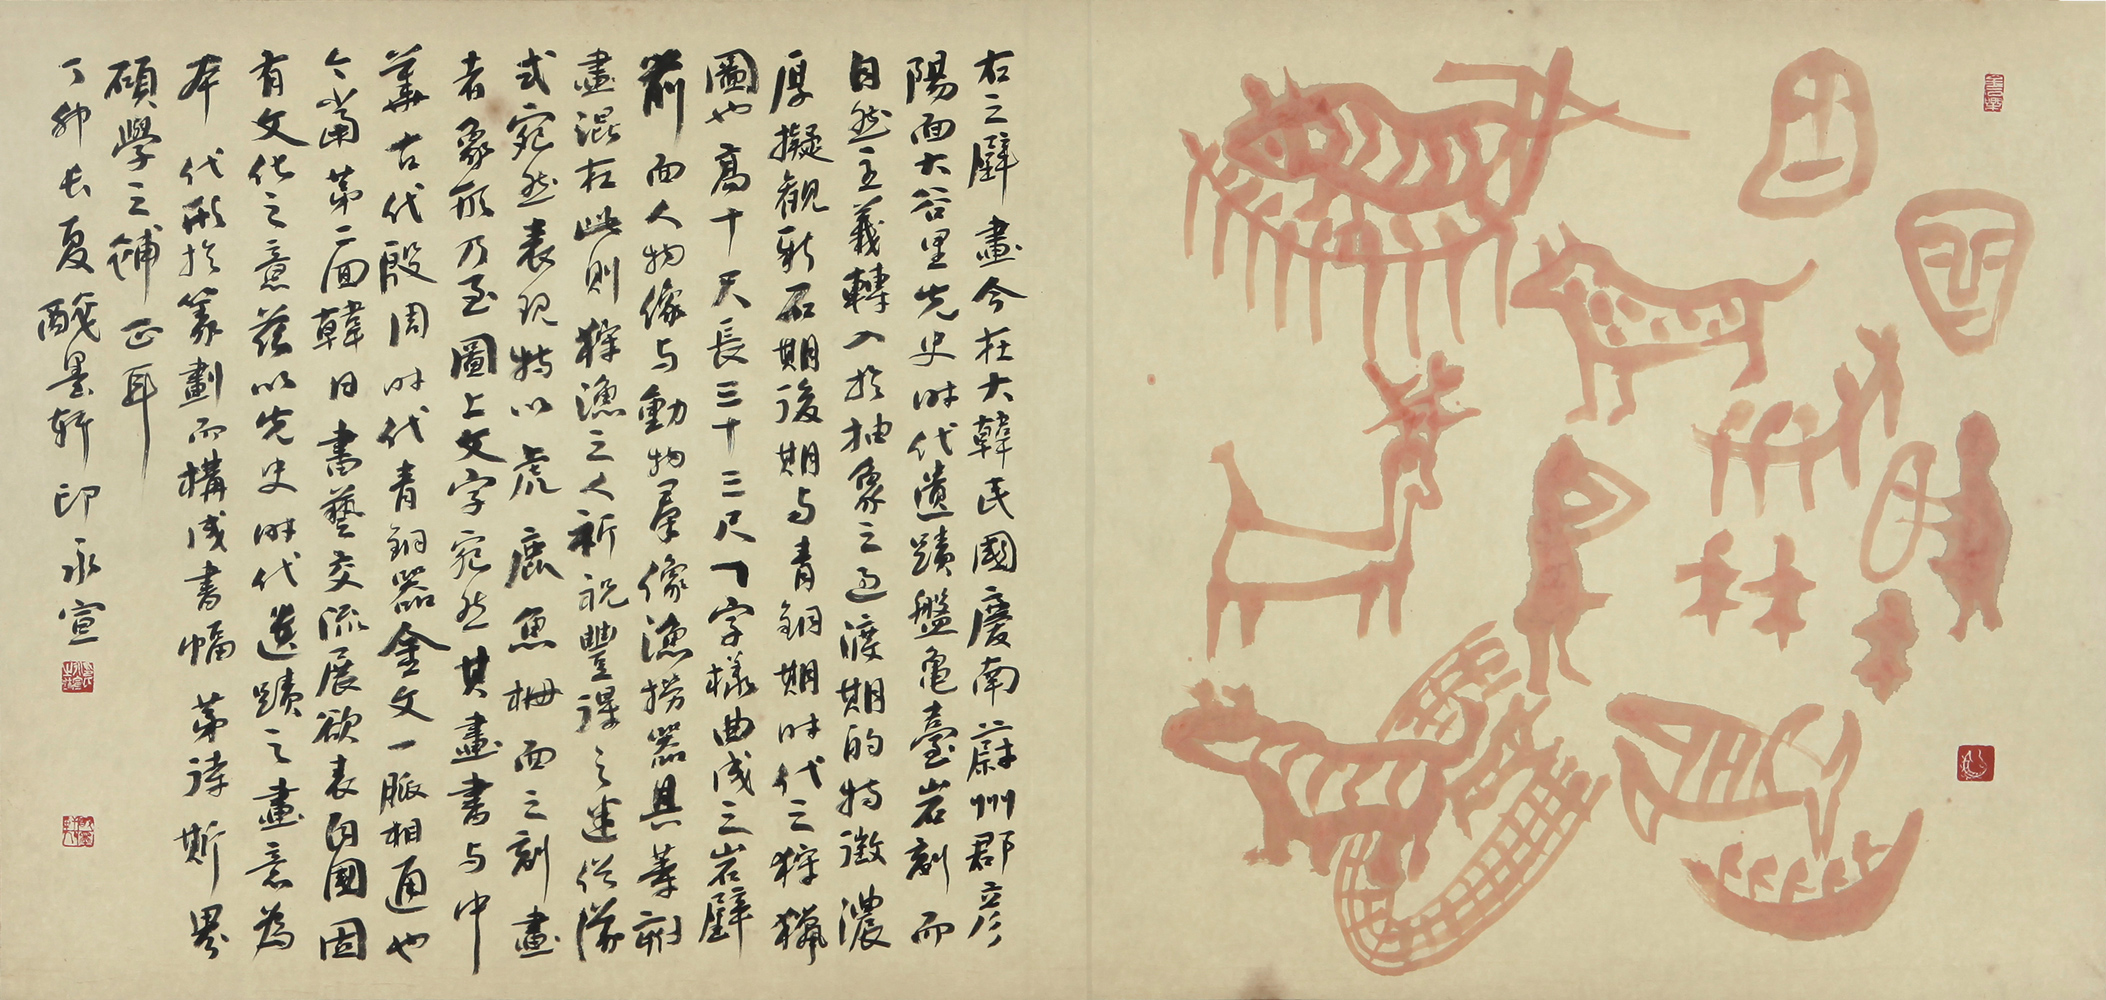 右之壁畫今在大韓民國慶南蔚州郡彦
陽面大谷里先史時代遺蹟盤龜臺岩刻而
自然主義轉入於抽象之過渡期的特徵濃
厚擬觀新石期後期与青銅期時代之狩獵
圖也高十尺長三十三尺ㄱ字樣曲成之岩壁
前面人物像与動物羣像漁撈器具等刻
畫混在此則狩漁之人祈祝豐穫之迷信係
式宛然表現特以虎鹿魚柵面之刻畫
者象形乃至圖上文字宛然其畫書与中
華古代殷周時代青銅器金文一脈相通也
今當第二回韓日書藝交流展欲表自國固
有文化之意茲以先史時代遺蹟之畫意為
本代形於篆劃而構成書幅苐待斯界
碩學之補正耳
丁卯長夏醆墨軒印永宣